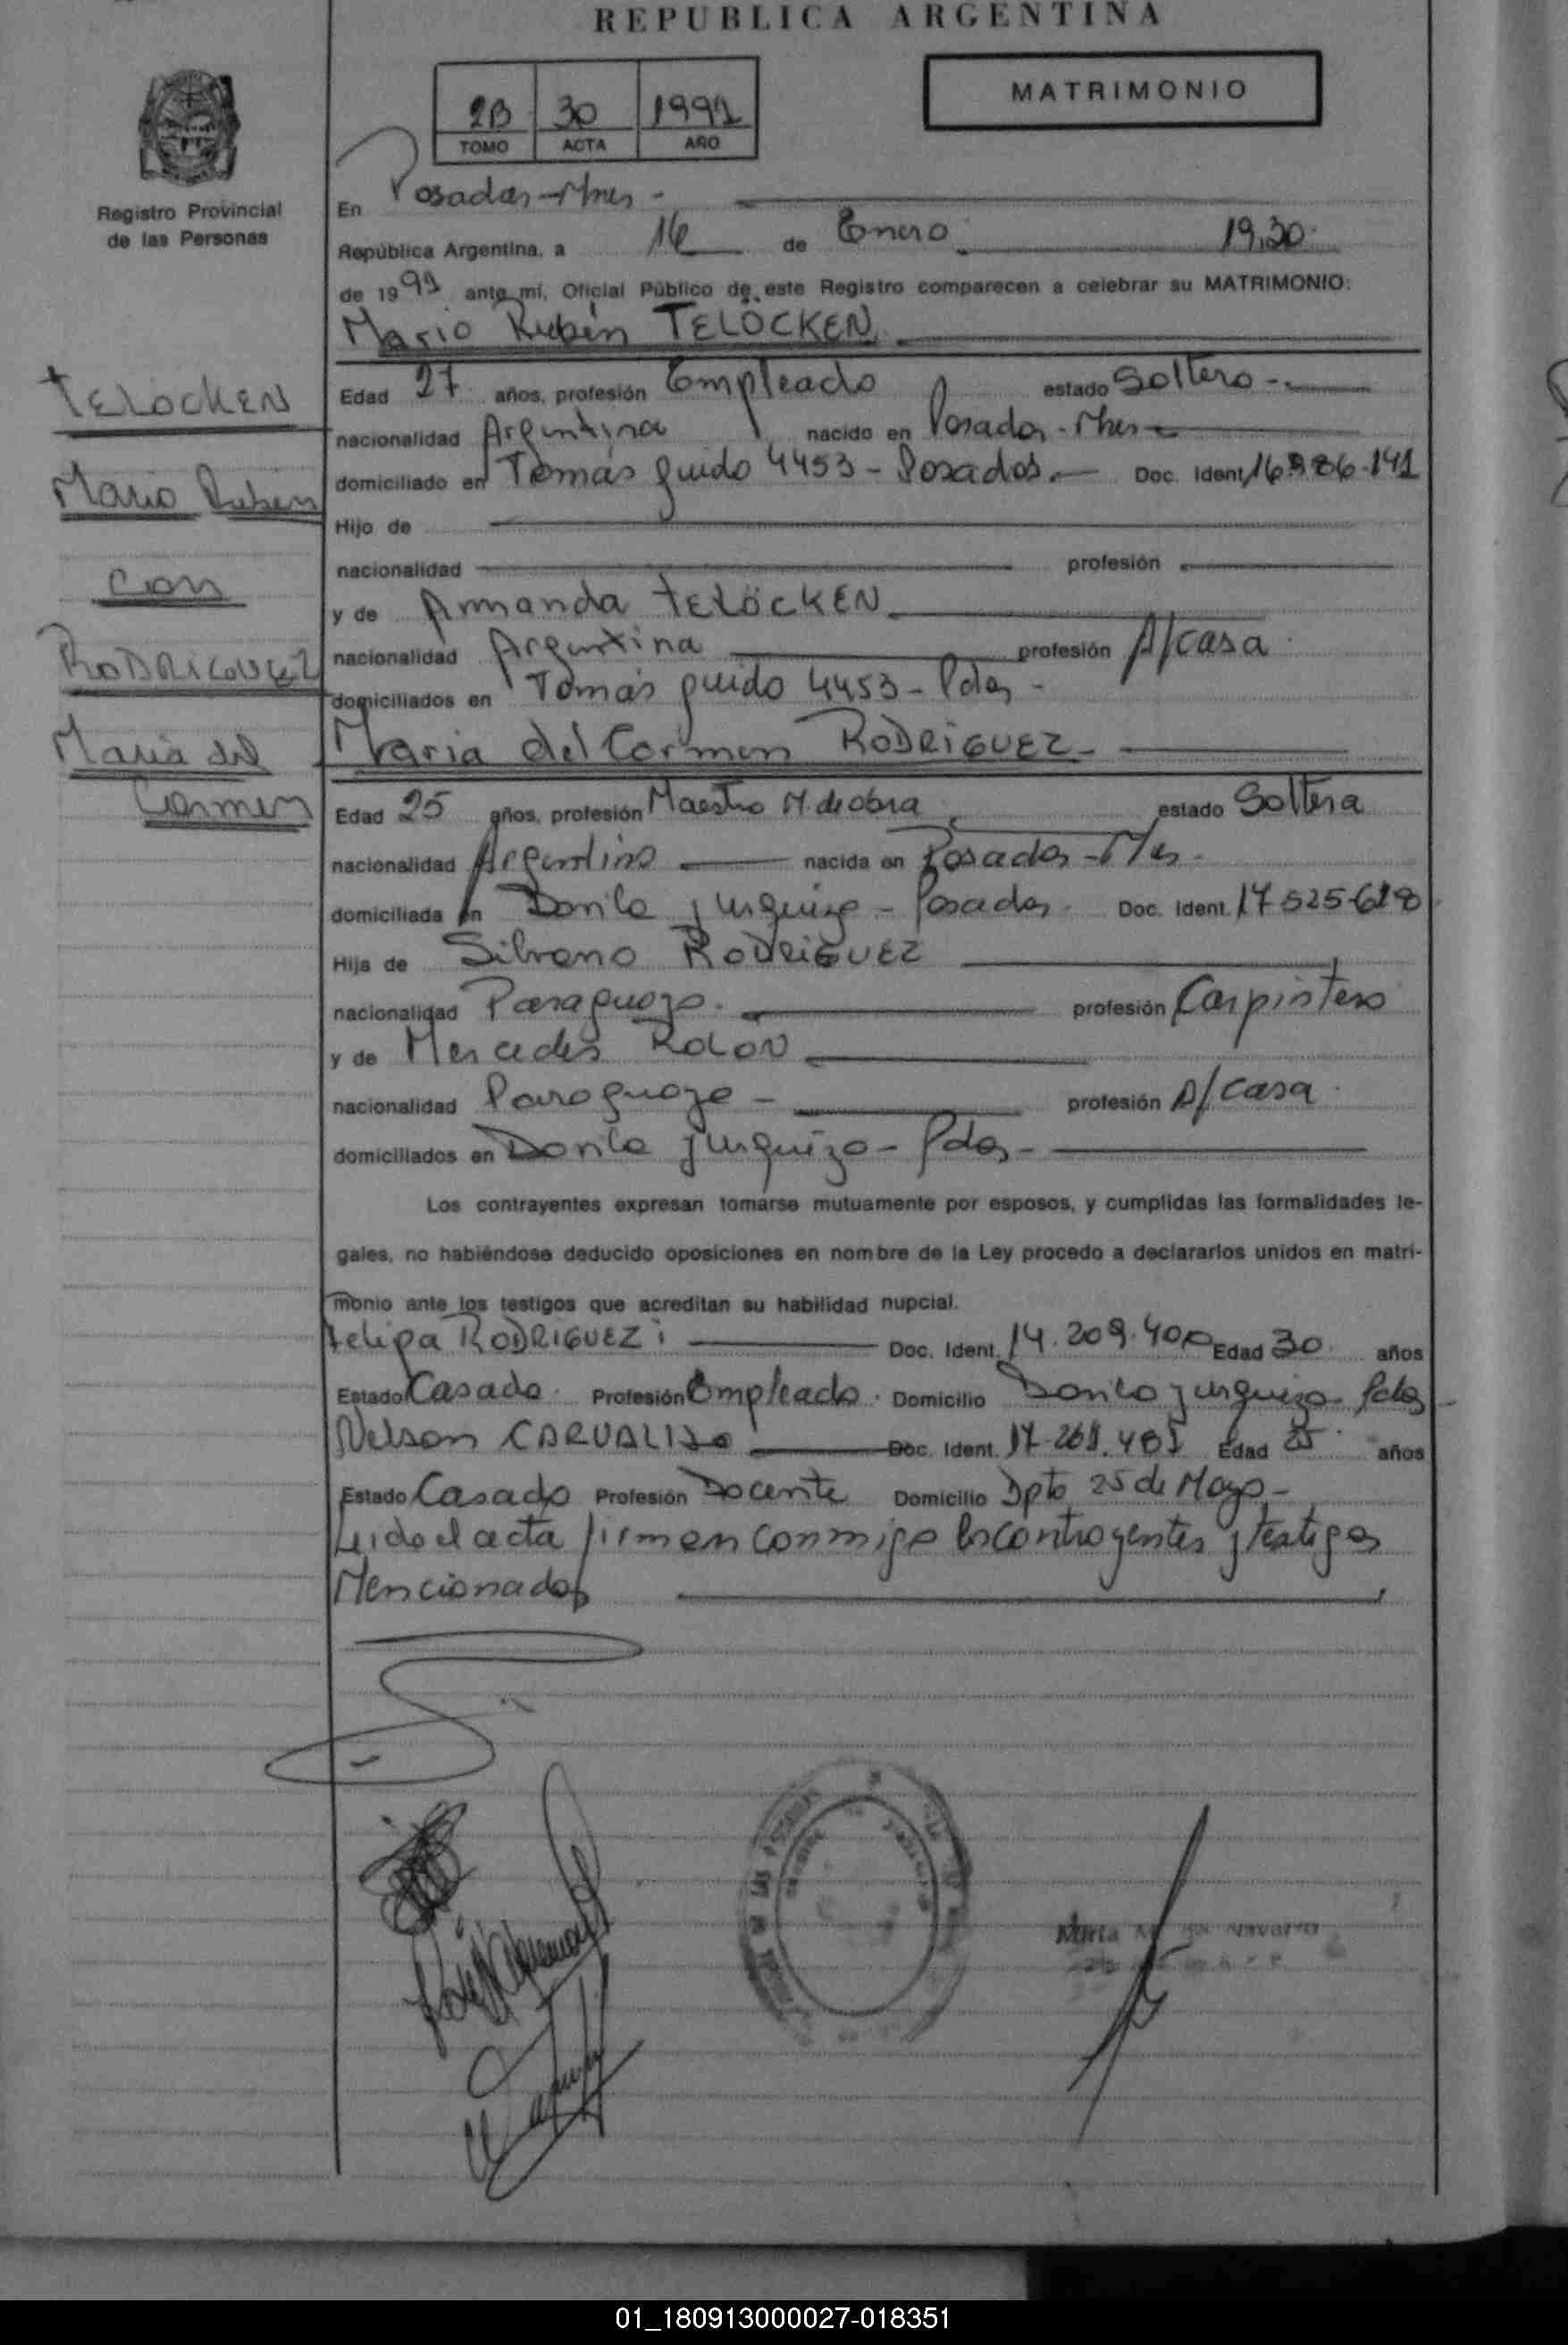 REPUBLICA ARGENTINA
2B 30 1991
TOMO ACTA AÑO
MATRIMONIO
Registro Provincial
de las Personas
En Posadas-Mnes -
República Argentina, a 16 de Enero 19,30
de 1991 ante mí, Oficial Público de este Registro comparecen a celebrar su MATRIMONIO:
Mario Rubén TELÖCKEN
TELÖCKEN
Mario Ruben
con
RODRIGUEZ
Maria del
Carmen
Edad 27 años, profesión Empleado estado Soltero -
nacionalidad Argentina nacido en Posadas - Mnes
domiciliado en Tomás guido 4453 - Posadas. Doc. Ident.
Hijo de
nacionalidad profesión
y de Armanda TELÖCKEN
nacionalidad Argentina profesión A/casa
domiciliados en Tomás guido 4453 - Pdas -
Maria del Carmen RODRIGUEZ -
Edad 25 años, profesión Maestro M. de obra estado Soltera
nacionalidad Argentina nacida en Posadas - Mnes.
domiciliada en y Urquiza - Posadas Doc. Ident. 17 525 618
Hija de Silvano RODRIGUEZ
nacionalidad Paraguayo profesión Carpintero
y de Mercedes ROLON
nacionalidad Paraguaya - profesión A/casa
domiciliados en y Urquiza - Pdas -
Los contrayentes expresan tomarse mutuamente por esposos, y cumplidas las formalidades le-
gales, no habiéndose deducido oposiciones en nombre de la Ley procedo a declararlos unidos en matri-
monio ante los testigos que acreditan su habilidad nupcial.
Felipa RODRIGUEZ Doc. Ident. 14.209.400 Edad 30 años
Estado Casada Profesión Empleada Domicilio y Urquiza - Pdas -
Nelson CARVALHO Doc. Ident. Edad 25 años
Estado Casado Profesión Docente Domicilio Dpto 25 de Mayo -
Leido el acta firman conmigo los contrayentes y testigos
Mencionados
01_180913000027-018351